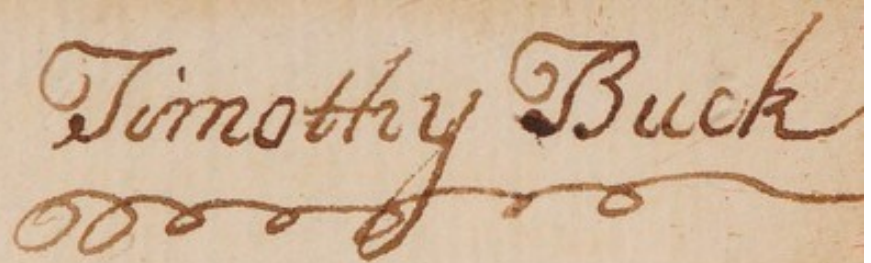 Timothy Buck